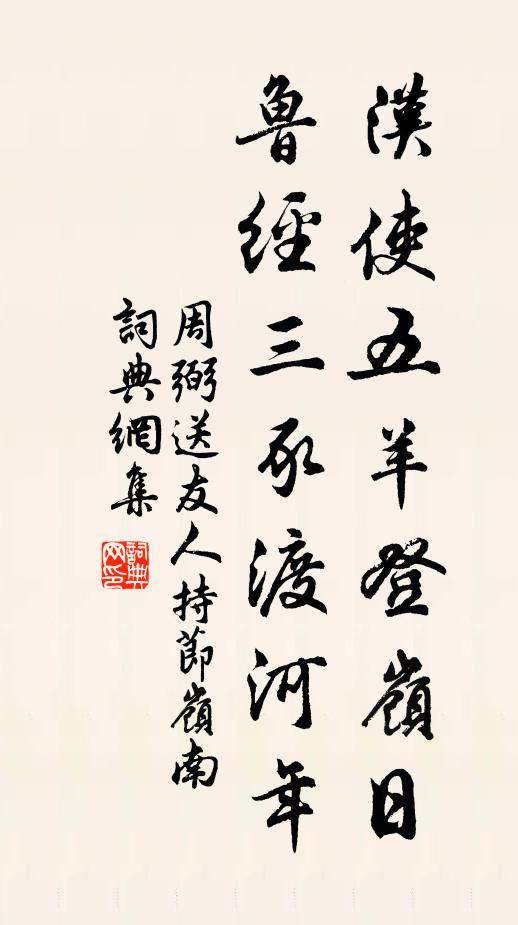 漢使五羊登嶺日
魯經三豕渡河年
周弼送友人持節嶺南
詞典網集
詞典网印